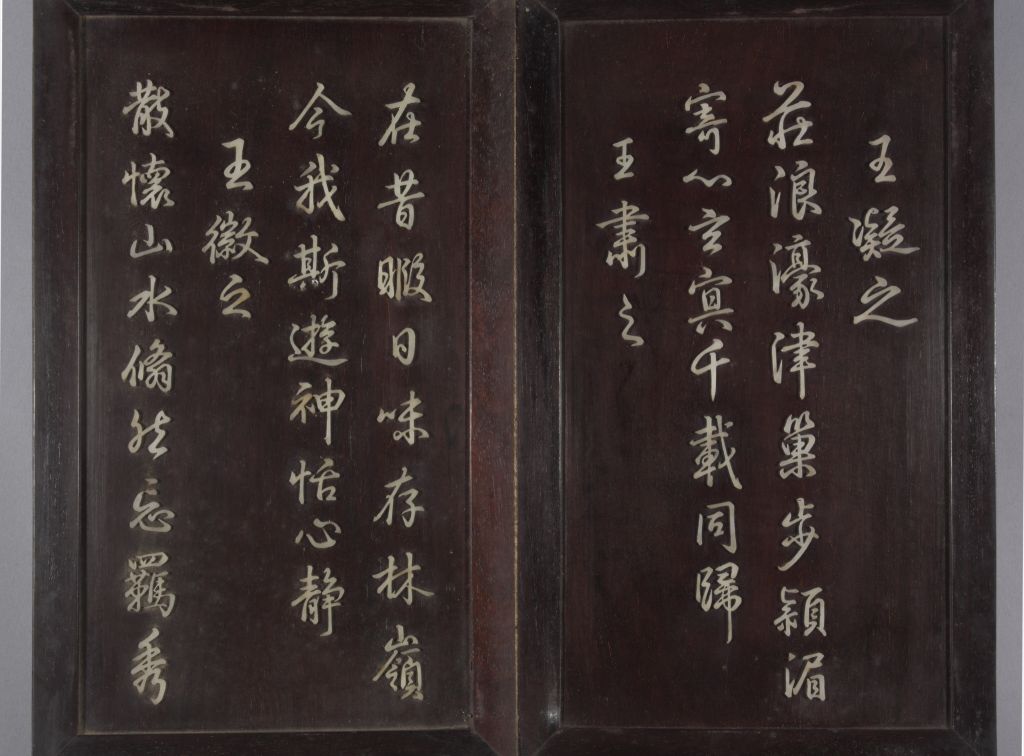 王凝之
莊浪濠津巢步潁湄
寄心玄冥千載同歸
王肅之
在昔暇日味存林嶺
今我斯遊神恬心靜
王徽之
散懷山水翛然忘羈秀